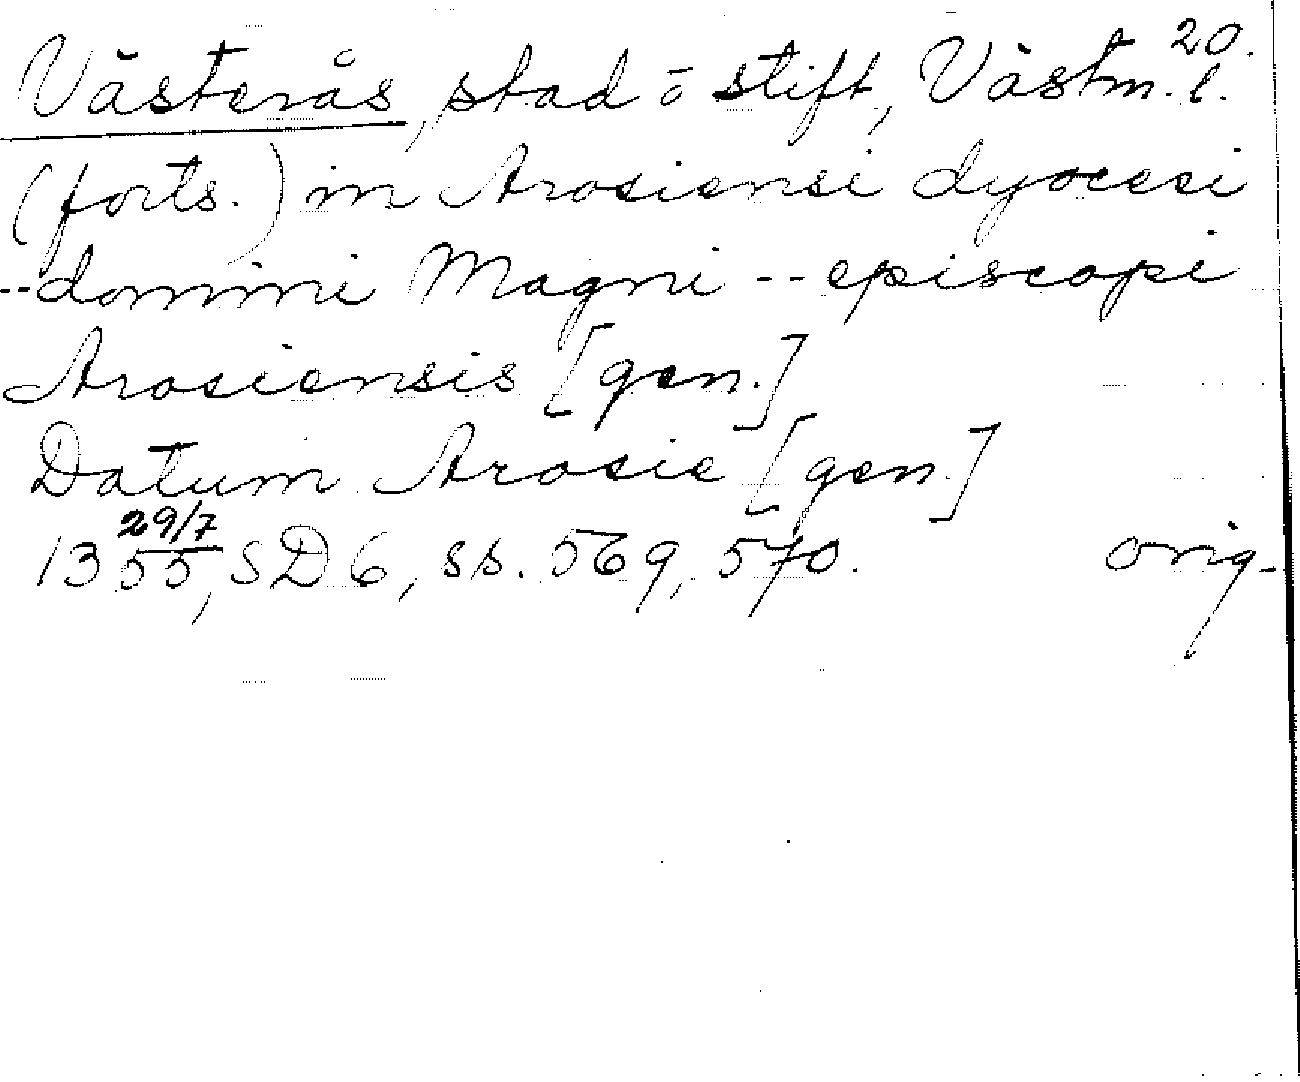 20.
Västerås, stad o stift, Västm. l.
(forts.) in Arosiensi dyocesi
-- domini Magni -- episcopi
Arosiensis [gen.]
Datum Arosie [gen.]
29/7
1355, SD 6, ss. 569, 570. orig.